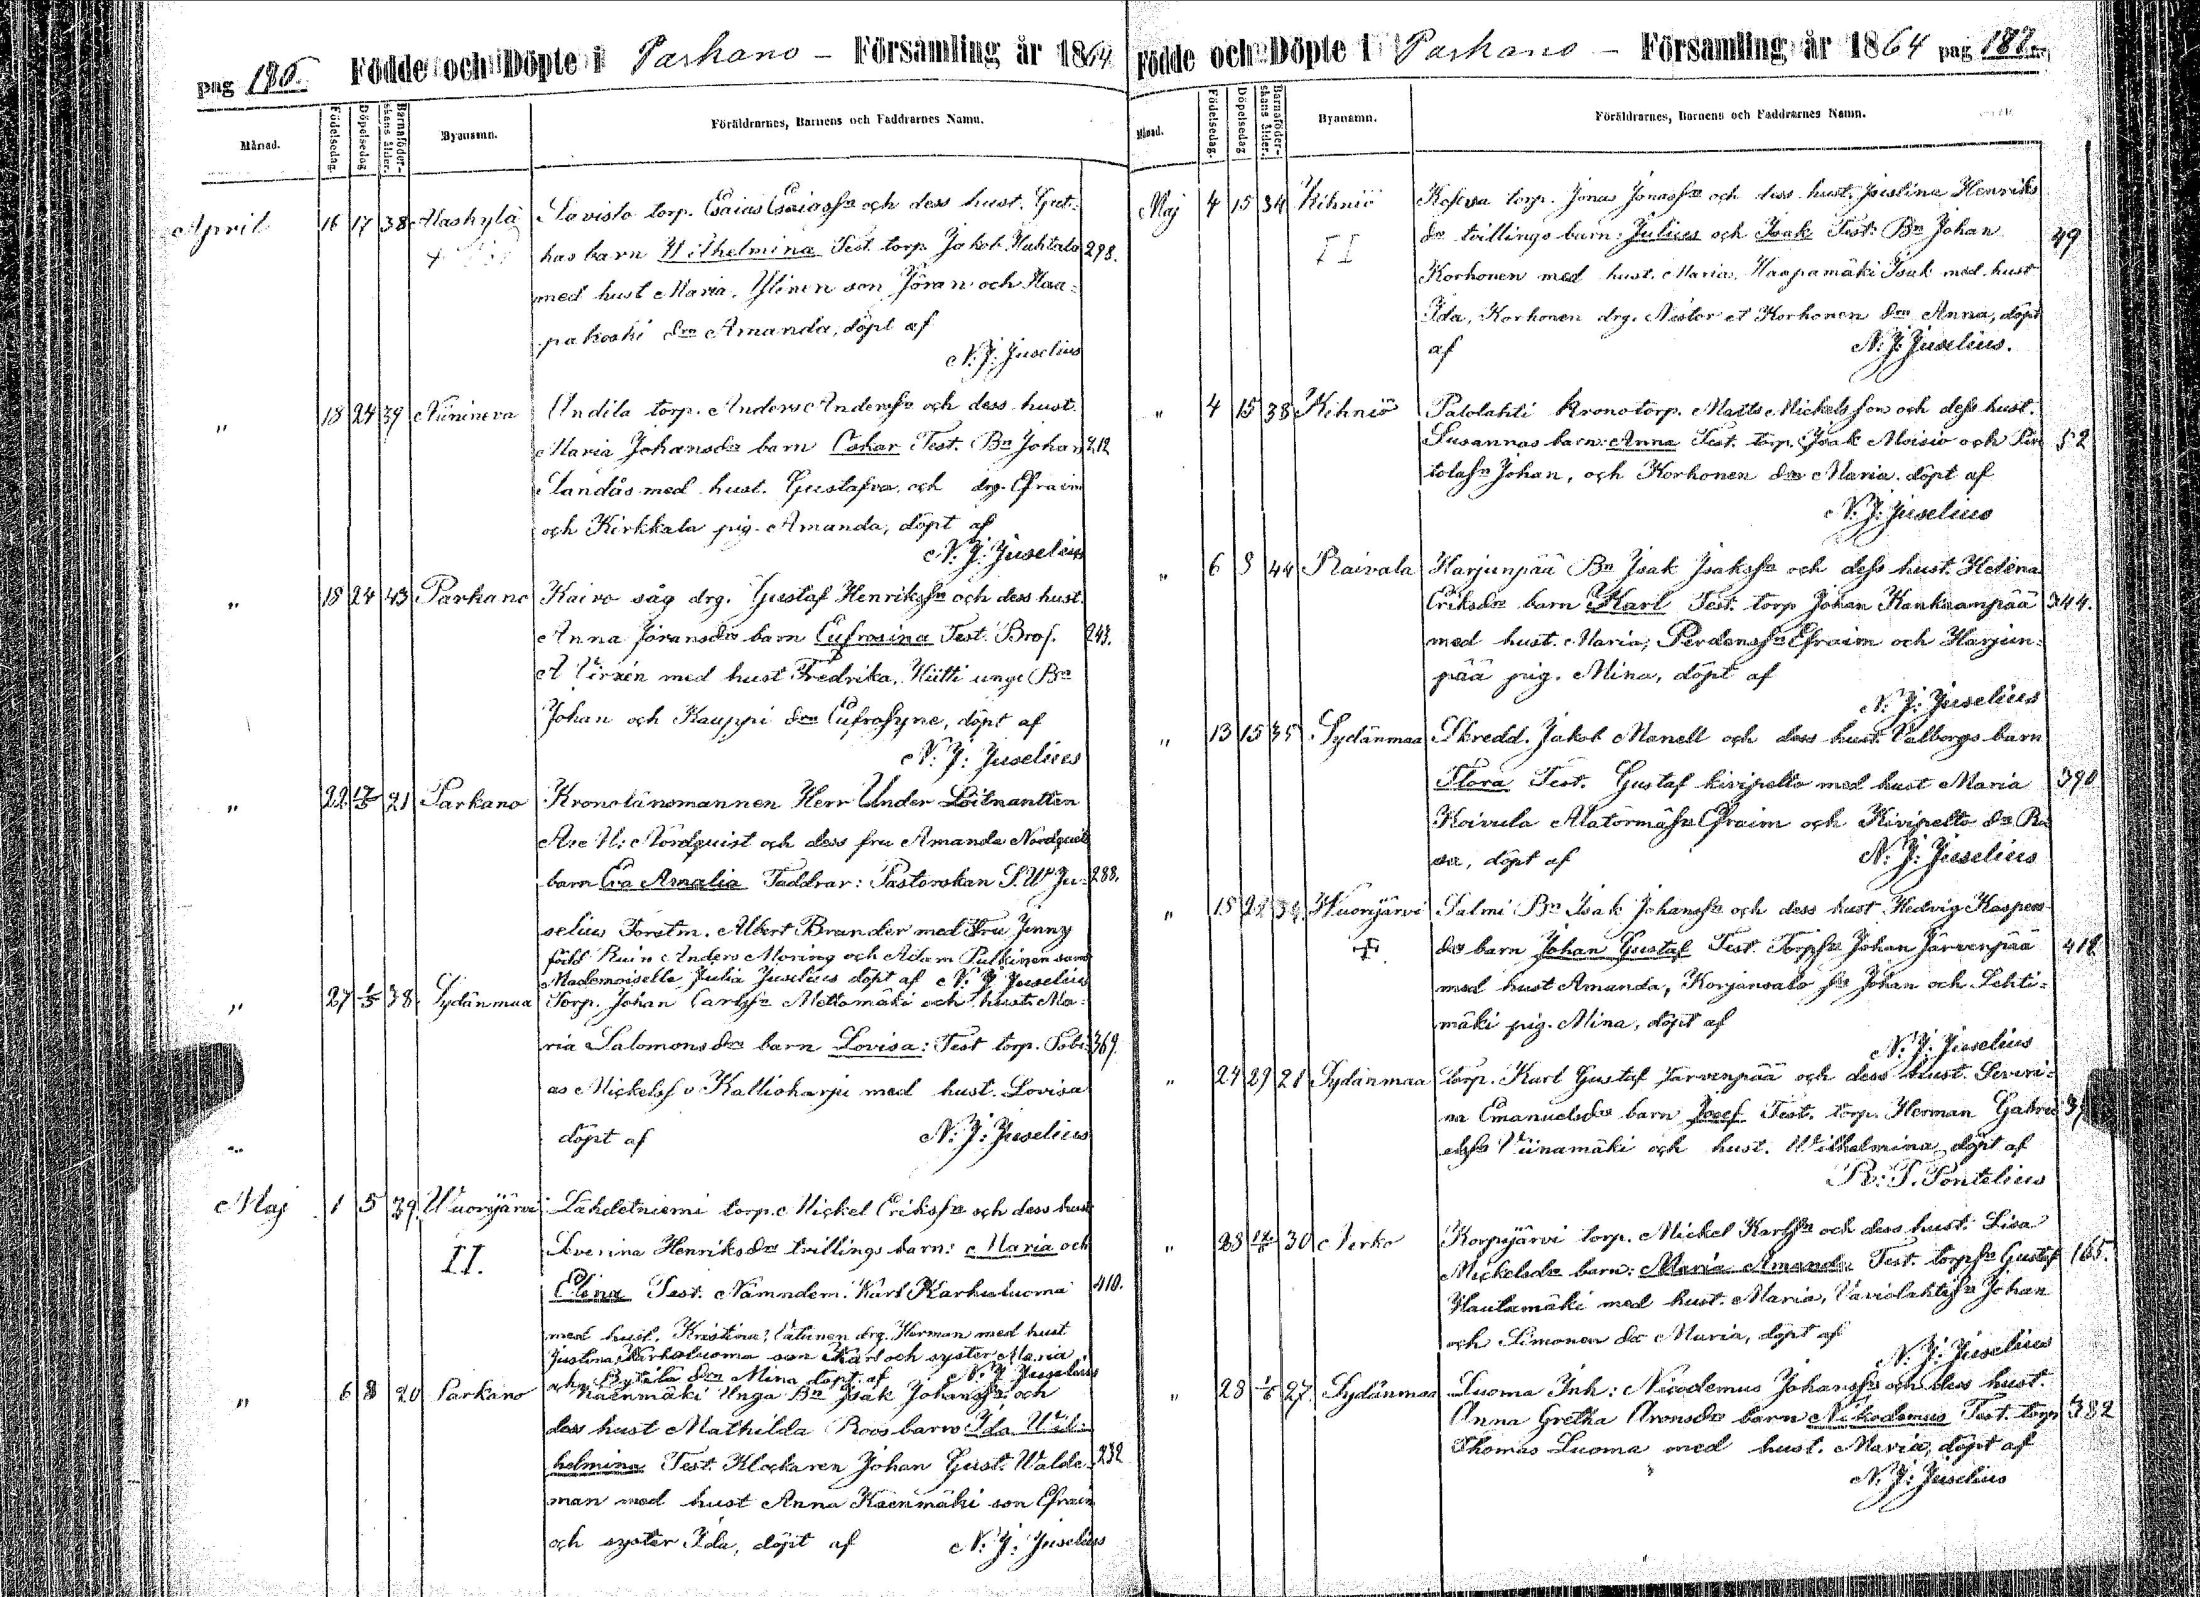 pag 186. Födde och Döpte i Parkano – Församling år 1864
Månad. Födelsedag. Döpelsedag Barnaföderskans ålder. Byanamn. Föräldrarnes, Barnens och Faddrarnes Namn.
April 16 17 38 Alaskylä Lavisto torp. Esaias Esaiassn och dess hust. Gut-
has barn Wilhelmina Test. torp. Jakob Huhtala 298.
med hust Maria. Ylinen son Jöran och Haa-
pakoski dra Amanda, döpt af
N. J: Juselius
" 18 24 39 Niinineva Andila torp. Anders Anderssn och dess hust.
Maria Johansdr barn Oskar Test. Bn Johan 212
Sandås med hust. Gustafva och drg. Efraim
och Kirkkala pig. Amanda, döpt af
N. J: Juselius
" 18 24 43 Parkano Kairo såg drg. Gustaf Henrikssn och dess hust.
Anna Jöransdr barn Eufrosina Test. Brof. 243.
A Virzén med hust Fredrika, Hütti unge Bn
Johan och Kauppi dra Eufrosyne, döpt af
N: J: Juselius
" 22 21 Parkano Kronolänsmannen Herr Under Löitnantten
Nordquist och dess fru Amanda Nordquist
barn Eva Amalia Faddrar: Pastorskan S. W. Ju- 288.
selius Forstm. Albert Brander med Fru Jenny
född Ruin Anders Moring och Adam Pulkinen samt
Mademoiselle Julia Juselius döpt af N. J Juselius
" 27 1/5 38 Sydänmaa Torp. Johan Carlssn Mettämäki och hust: Ma-
ria Salomonsdr barn Lovisa: Test torp. Tobi- 369.
as Mickelss Kallioharju med hust. Lovisa
döpt af N: J: Juselius
"
Maj 1 5 39. Wuorijärvi Lähdetniemi torp. Mickel Erikssn och dess hust
II. Severina Henriksdr tvillings barn: Maria och
Elina Test. Nämndem. Karl Karhuluoma 410.
med hust. Kristina; Vätinen drg. Herman med hust
Justina, Karhuluoma son Karl och syster Maria
och dra Mina döpt af N. J Juselius
" 6 8 20 Parkano Käenmäki Unga Bn Isak Johanssn och
dess hust Mathilda Roos barn Ida Wil-
helmina Test. Klockaren Johan Gust. Walde- 232
man med hust Anna Käenmäki son Efraim
och syster Ida, döpt af N. J: Juselius
Födde och Döpte i Parkano – Församling år 1864 pag 187.
Månad. Födelsedag. Döpelsedag Barnaföderskans ålder. Byanamn. Föräldrarnes, Barnens och Faddrarnes Namn.
Maj 4 15 34 Kihniö Koskva torp. Jonas Jonassn och dess hust. Justina Henriks
II dr tvillings barn: Julius och Isak Test: Bn Johan 49
Korhonen med hust. Maria, Haapamäki Isak med hust
Ida, Korhonen drg. Nestor et Korhonen dra Anna, döpt
af N: J: Juselius.
" 4 15 38 Kihniö Palolahti kronotorp. Matts Mickelsson och dess hust.
Susannas barn: Anna Test. torp. Isak Aloisio och Pir 52
tolasn Johan, och Korhonen dra Maria. döpt af
N: J: Juselius
" 6 8 44 Raivala Harjunpää Bn Isak Isakssn och dess hust. Helena
Eriksdr barn Karl Test. torp Johan Kankaanpää 344.
med hust. Maria; Perdenssn Efraim och Harjun-
pää pig. Mina, döpt af
N. J: Juselius
" 13 15 35 Sydänmaa Skredd. Jakob Manell och dess hust. Valborgs barn
Flora Test. Gustaf kivipelto med hust Maria 390
Koivula Alatörmäsn Efraim och Kivipelto dr Ro
sa, döpt af N: J: Juselius
" 15 Wuorijärvi Salmi Bn Isak Johanssn och dess hust Hedvig Kaspers-
+ dr barn Johan Gustaf Test. Torpsn Johan Järvenpää 418
med hust Amanda, Korjansalo sn Johan och Lehti-
mäki pig. Mina, döpt af
N: J: Juselius
" 24 29 28 Sydänmaa torp. Karl Gustaf Järvenpää och dess hust. Severi-
na Emanuelsdr barn Josef Test. torp. Herman Gabri
elssn Viinamäki och hust. Wilhelmina, döpt af
R: T. Pontelius
" 28 30 Nerko Korpijärvi torp. Mickel Karlssn och dess hust. Lisa
Mickelsdr barn: Maria Amanda Test. torpsn Gustaf 165.
Hautamäki med hust. Maria, Vaviolahtisn Johan
och Simonen dr Maria, döpt af N. J: Juselius
" 28 27. Sydänmaa Luoma Inh: Nicodemus Johanssn och dess hust.
Anna Gretha Aronsdr barn Nikodemus Test. torp 382
Thomas Luoma med hust. Maria, döpt af
N: J: Juselius